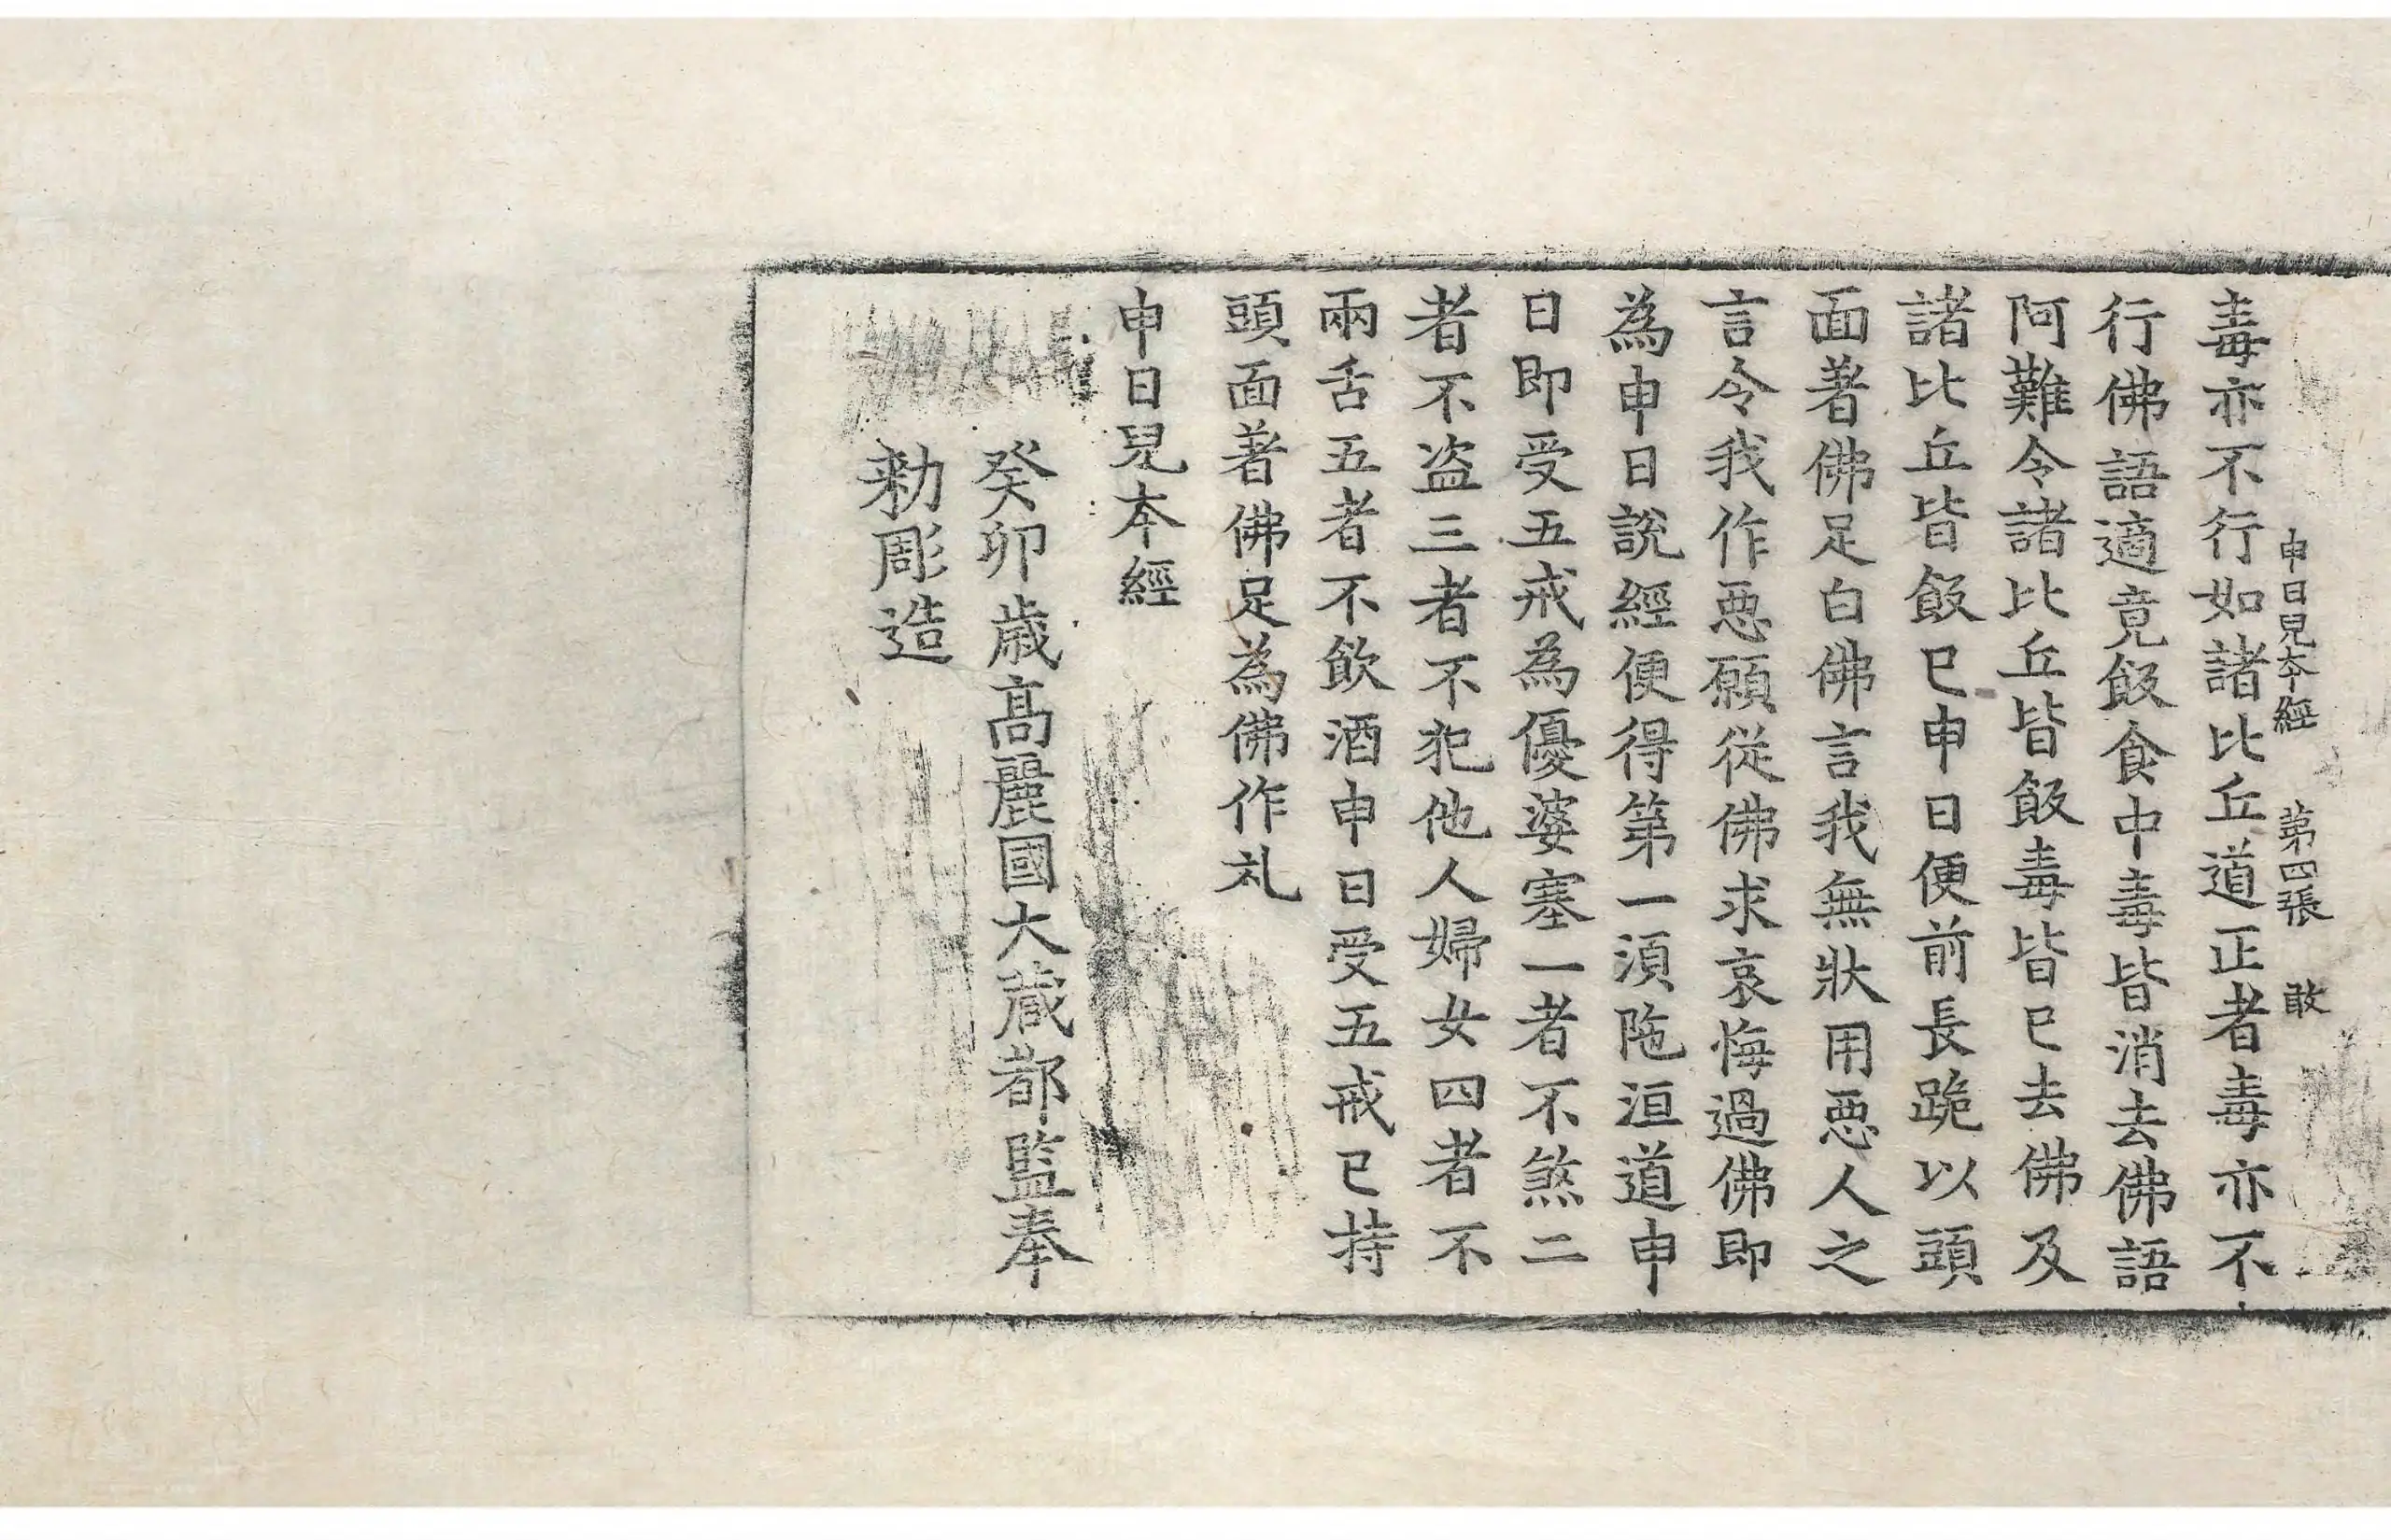 申日兒本經 第四張 敢
毒亦不行如諸比丘道正者毒亦不
行佛語適竟飯食中毒皆消去佛語
阿難令諸比丘皆飯毒皆已去佛及
諸比丘皆飯已申日便前長跪以頭
面著佛足白佛言我無狀用惡人之
言令我作惡願從佛求哀悔過佛即
為申日說經便得第一湏陁洹道申
日即受五戒為優婆塞一者不煞二
者不盗三者不犯他人婦女四者不
兩舌五者不飲酒申日受五戒已持
頭面著佛足為佛作礼
申日兒本經
癸卯歳髙麗國大藏都監奉
勅彫造